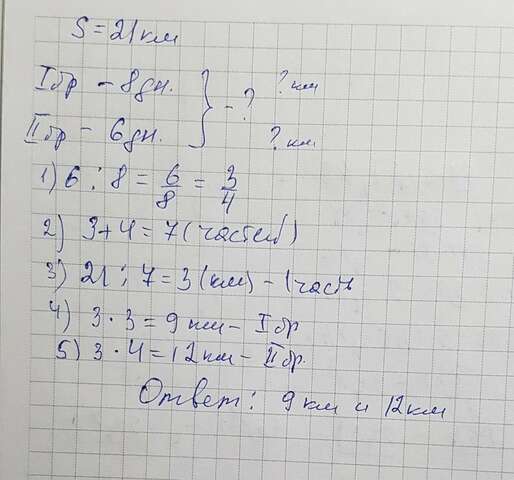 S = 21 км
I бр - 8 дн. } - ? ? км
II бр - 6 дн. ? км
1) 6 : 8 = 6/8 = 3/4
2) 3 + 4 = 7 (частей)
3) 21 : 7 = 3 (км) - 1 часть
4) 3 · 3 = 9 км - I бр
5) 3 · 4 = 12 км - II бр.
Ответ: 9 км и 12 км